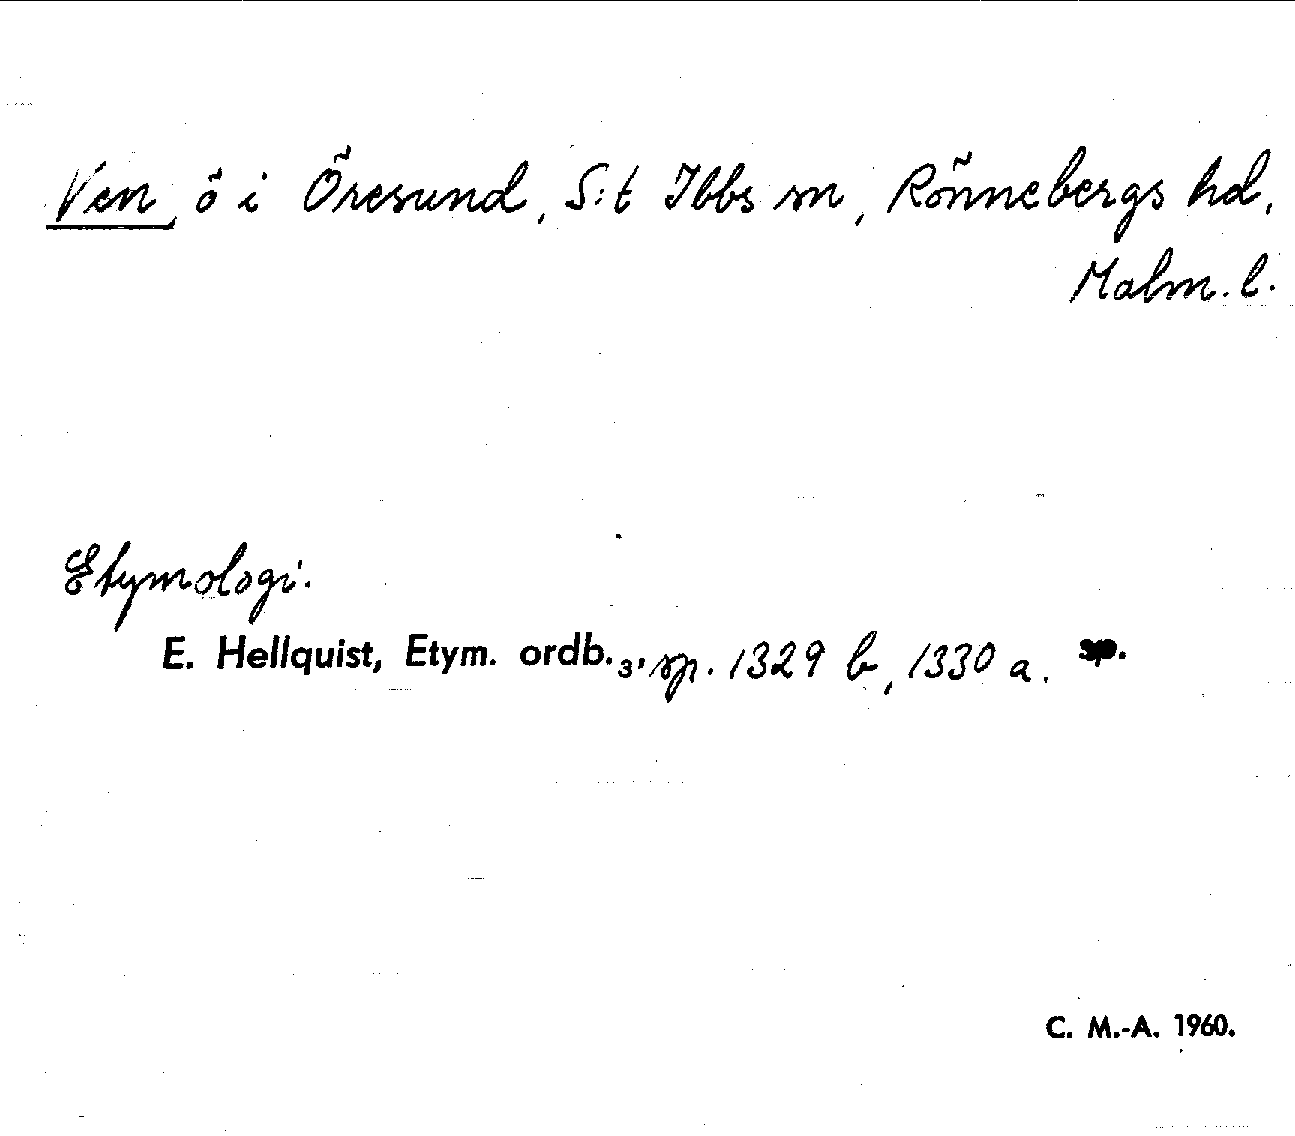 Ven, ö i Öresund, S:t Ibbs sn, Rönnebergs hd,
Malm. l.
Etymologi.
E. Hellquist, Etym. ordb.₃, sp. 1329 b, 1330 a. sp.
C. M.-A. 1960.